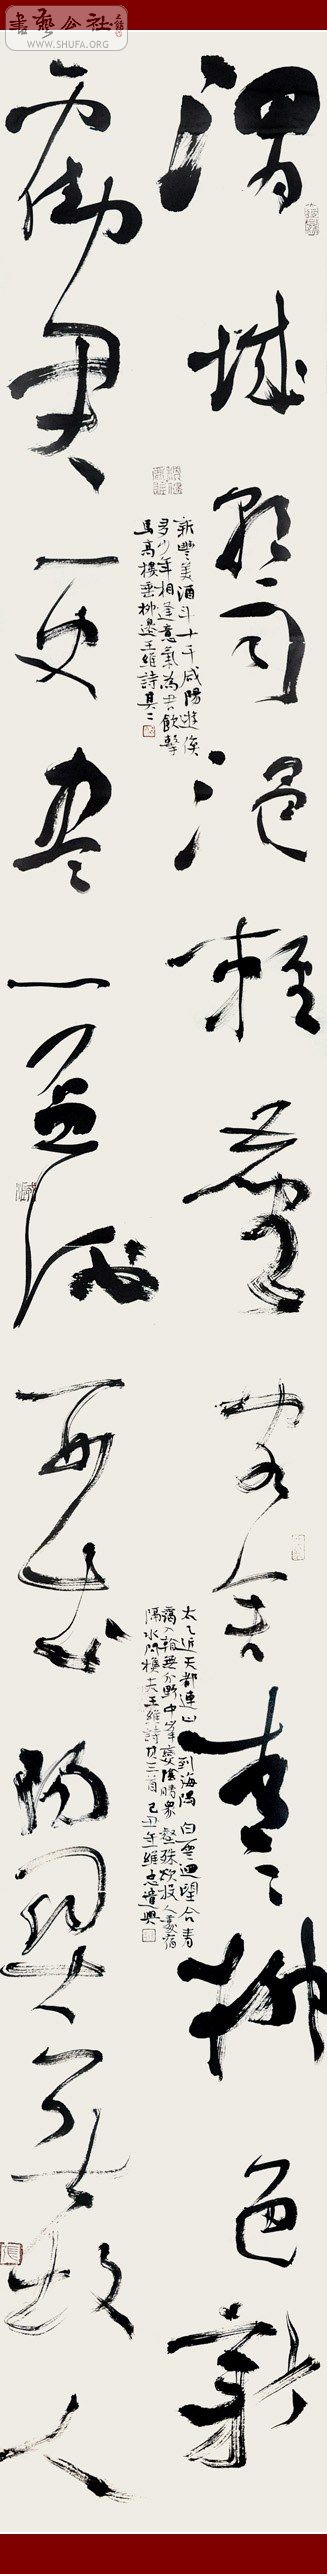 書藝公社
WWW.SHUFA.ORG
渭城朝雨浥輕塵客舍青青柳色新
新豐美酒斗十千咸陽遊俠
多少年相逢意氣為君飲繫
馬高樓垂柳邊王維詩其二
太乙近天都連山到海隅白雲迴望合青
靄入看無分野中峯變陰晴眾壑殊欲投人處宿
隔水問樵夫王維詩三首己丑年維忠遣興
勸君更盡一杯酒西出陽關無故人